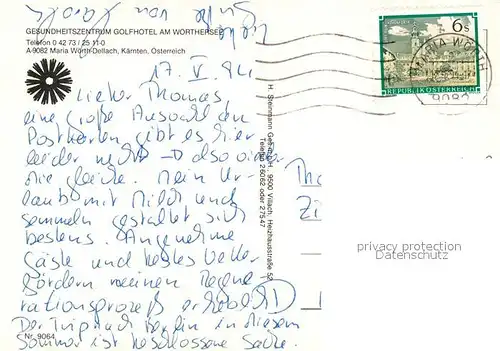 Liebe Grüße von Karola
GESUNDHEITSZENTRUM GOLFHOTEL AM WÖRTHERSEE
Telefon 0 42 73 / 25 11-0
A-9082 Maria Wörth-Dellach, Kärnten, Österreich
6s
REPUBLIK ÖSTERREICH
MARIA WÖRTH
9082
17. V. 86
Lieber Thomas,
eine große Auswahl an
Postkarten gibt es hier
leider nicht → also immer
die gleiche. Mein Ur-
laub mit Milch und
Semmeln gestaltet sich
bestens. Angenehme
Gäste und bestes Wetter
fördern meinen Regene-
rationsprozeß erheblich
Der Trip nach Berlin in diesem
Sommer ist beschlossene Sache.
Nr. 9064
H. Steinmann Ges.m.b.H., 9500 Villach, Heizhausstraße 52
Telefon 26062 oder 27547
privacy protection
Datenschutz